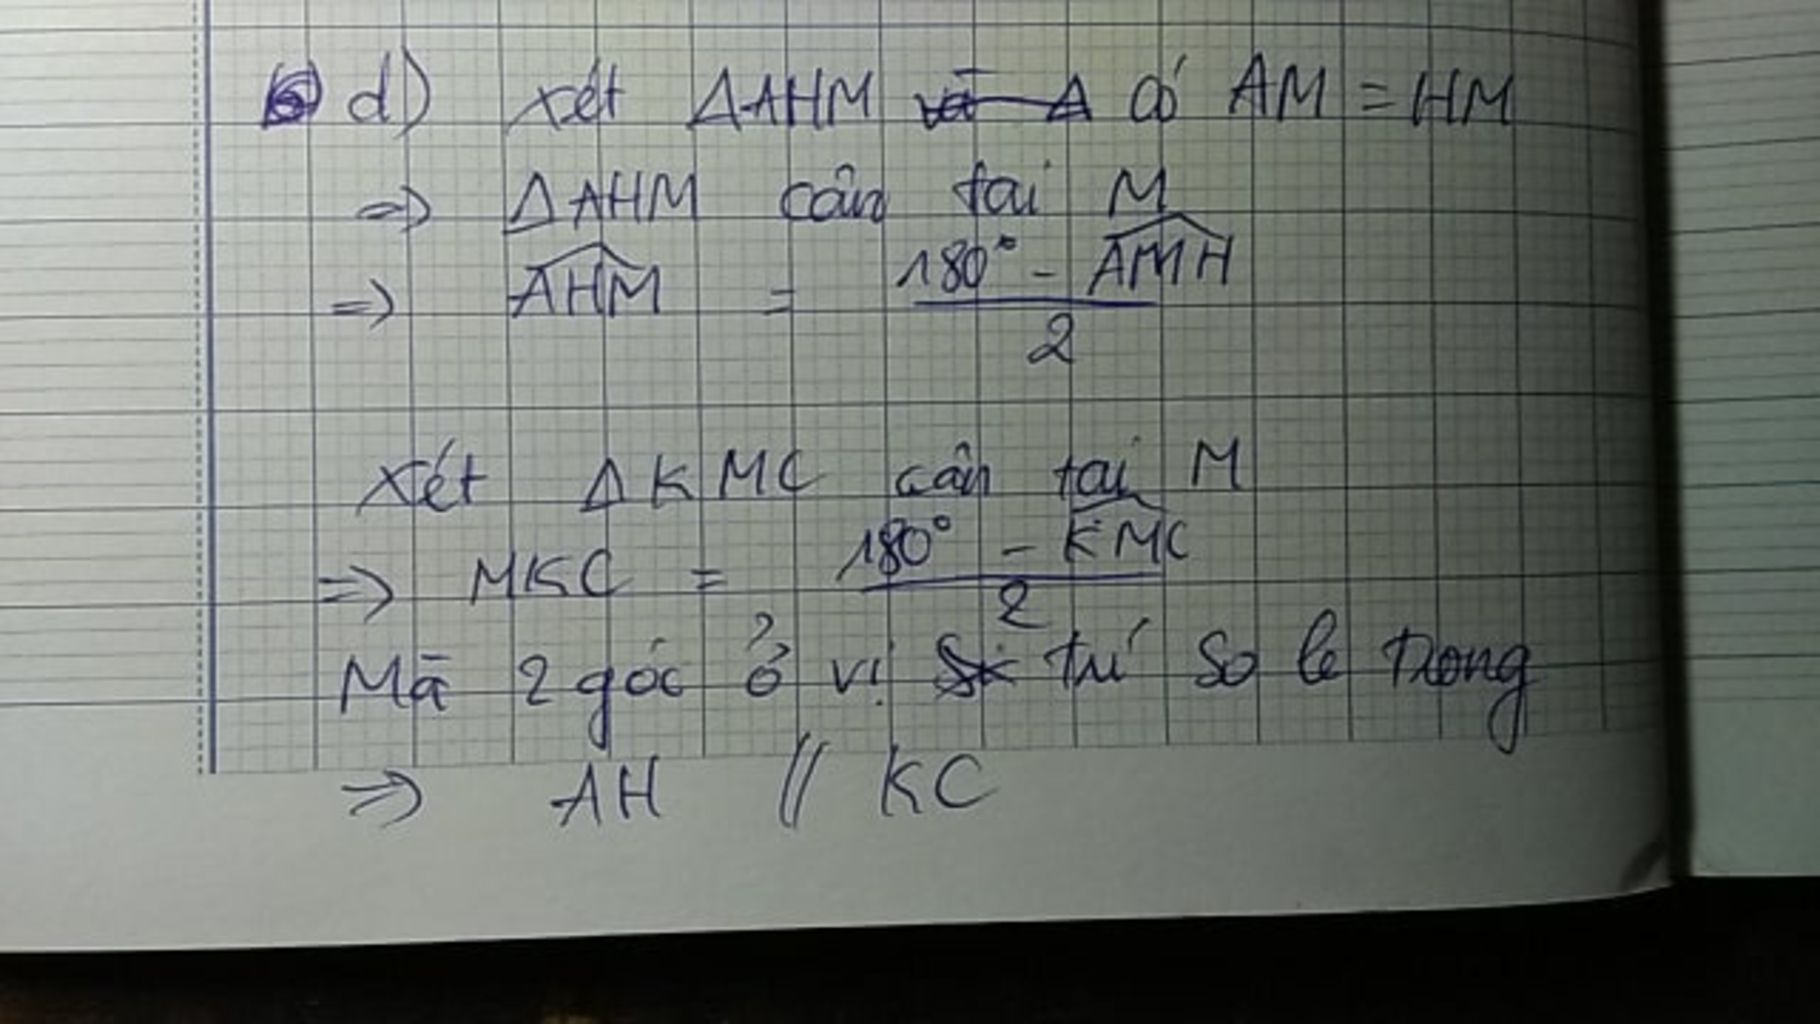 d) Xét ΔAHM có AM = HM
=> ΔAHM cân tại M
=> \widehat{AHM} = \frac{180° - \widehat{AMH}}{2}
Xét ΔKMC cân tại M
=> MKC = \frac{180° - \widehat{KMC}}{2}
Mà 2 góc ở vị trí so le trong
=> AH // KC